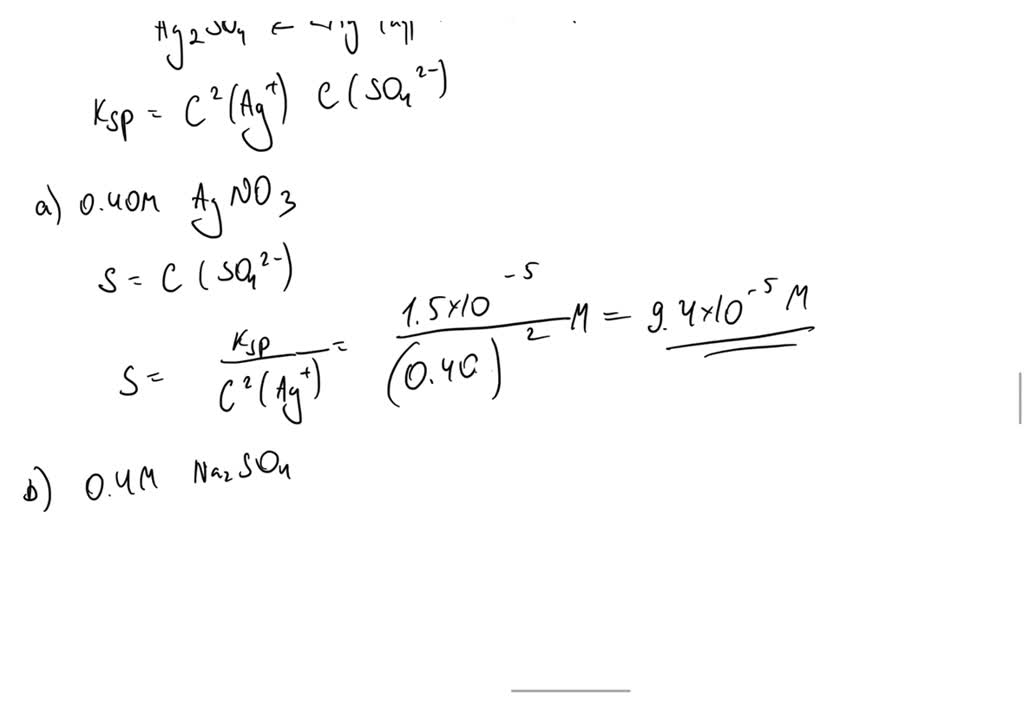 Ag2SO4
Ksp = C²(Ag⁺) C(SO4²⁻)
a) 0.40M AgNO3
S = C (SO4²⁻)
S = Ksp / C²(Ag⁺) = 1.5×10⁻⁵ / (0.40)² M = 9.4×10⁻⁵ M
b) 0.4M Na2SO4